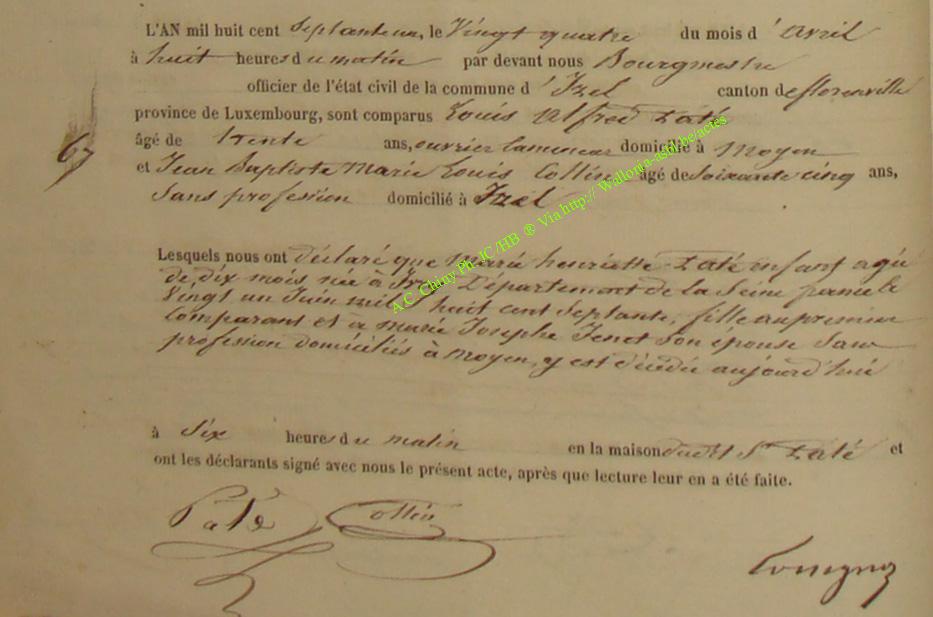 L'AN mil huit cent Septanteun, le Vingt quatre du mois d'avril
à huit heures du matin par devant nous Bourgmestre
officier de l'état civil de la commune d'Izel canton de florenville
province de Luxembourg, sont comparus Louis Alfred Paté
âgé de trente ans, ouvrier lamineur domicilié à Moyen
67
et Jean Baptiste Marie Louis Collin âgé de Soixante cinq ans,
Sans profession domicilié à Izel
A.C. Chiny Ph JC/HB ® Via http://Wallonia-asbl.be/actes
Lesquels nous ont déclaré que Marie henriette Paté enfant agé
de dix mois née à Département de la Seine france le
Vingt un Juin mil huit cent Septante, fille au premier
Comparant et à Marie Josephe Jenot Son epouse Sans
profession domiciliés à Moyen, y est décédée aujourd'hui
à Six heures du matin en la maison dudit Sr Paté et
ont les déclarants signé avec nous le présent acte, après que lecture leur en a été faite.
Paté Collin